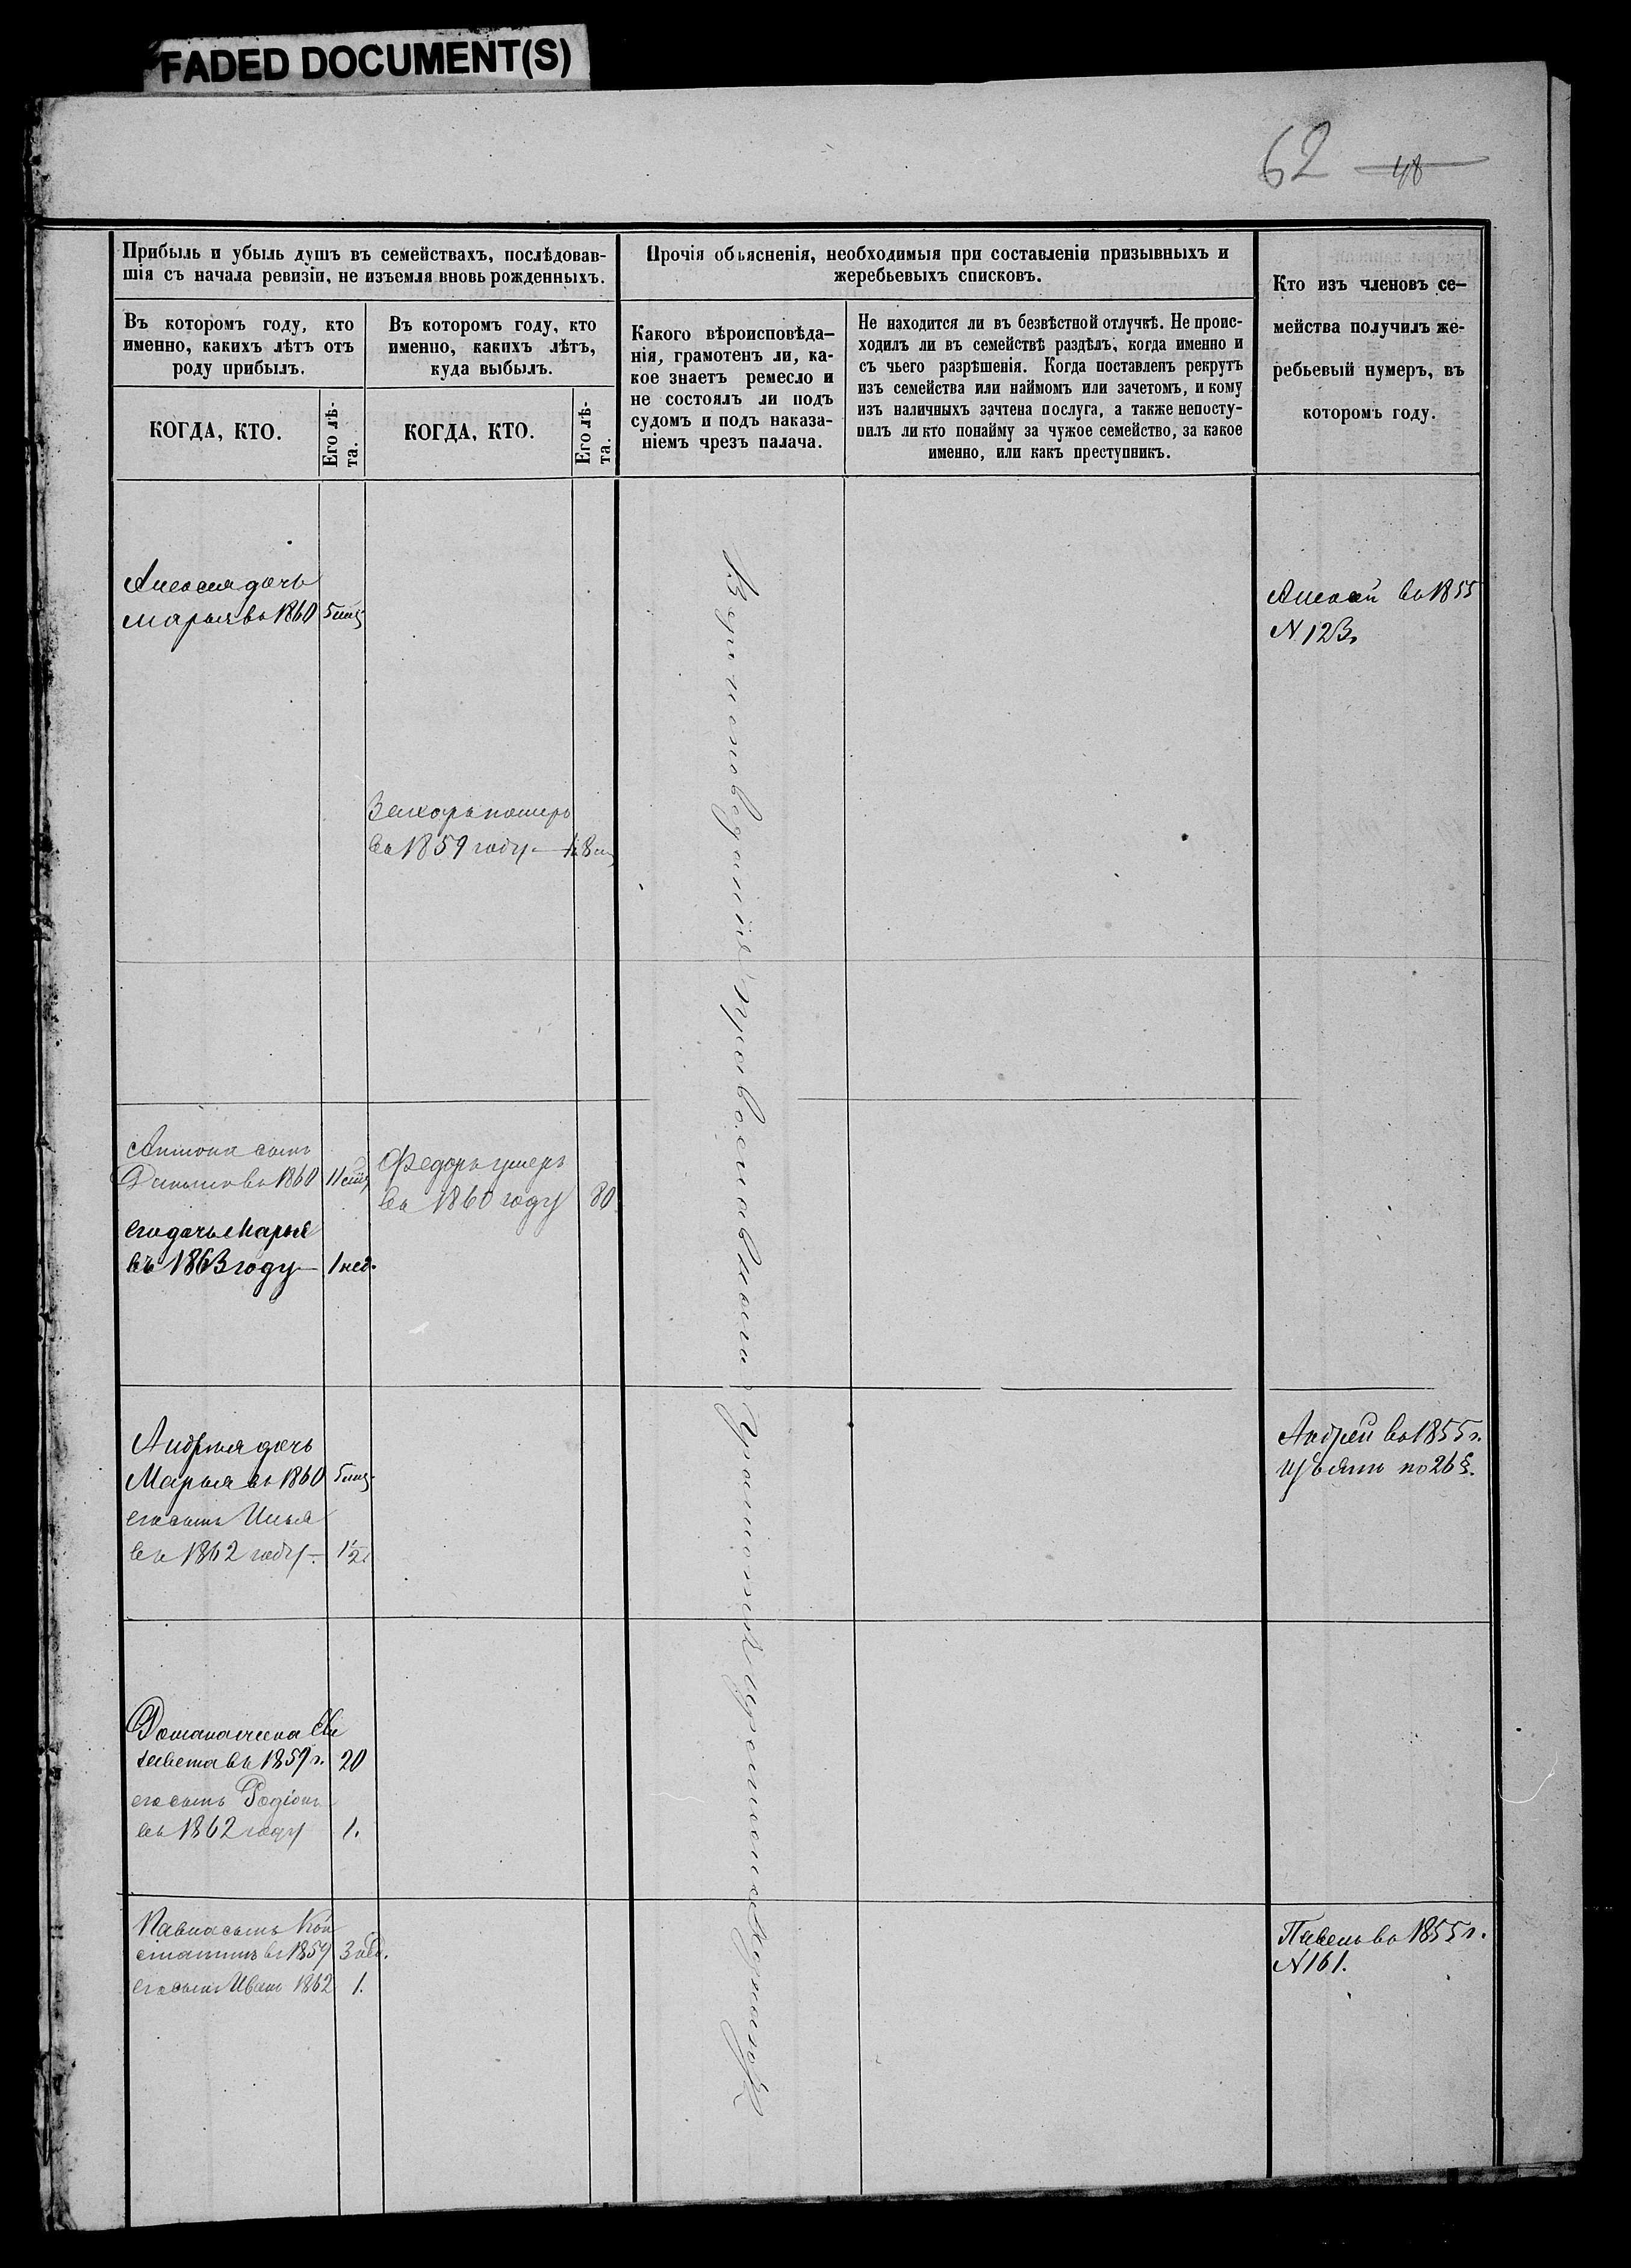 FADED DOCUMENT(S)
62 48
Прибыль и убыль душъ въ семействахъ, послѣдовав-
шія съ начала ревизіи, не изъемля вновь рожденныхъ.
Въ которомъ году, кто
именно, какихъ лѣтъ отъ
роду прибылъ.
КОГДА, КТО.
Его лѣ-
та.
Въ которомъ году, кто
именно, какихъ лѣтъ,
куда выбылъ.
КОГДА, КТО.
Его лѣ-
та.
Прочія объясненія, необходимыя при составленіи призывныхъ и
жеребьевыхъ списковъ.
Какого вѣроисповѣда-
нія, грамотенъ ли, ка-
кое знаетъ ремесло и
не состоялъ ли подъ
судомъ и подъ наказа-
ніемъ чрезъ палача.
Не находится ли въ безвѣстной отлучкѣ. Не проис-
ходилъ ли въ семействѣ раздѣлъ, когда именно и
съ чьего разрѣшенія. Когда поставленъ рекрутъ
изъ семейства или наймомъ или зачетомъ, и кому
изъ наличныхъ зачтена послуга, а также непосту-
пилъ ли кто понайму за чужое семейство, за какое
именно, или какъ преступникъ.
Кто изъ членовъ се-
мейства получилъ же-
ребьевый нумеръ, въ
которомъ году.
дочь
Марья въ 1860 5 мѣс
въ 1855
N 123.
въ 1859 году
Антона сынъ
въ 1860 11 мѣс
Федоръ умеръ
въ 1860 году 80.
его дочь Марья
въ 1863 году 1 нед.
Андрея дочь
Марья въ 1860 5 мѣс
его сынъ Илья
въ 1862 году 1 1/2
Андрей въ 1855 г.
изъятъ по 26 §.
Романа жена Ели
завета въ 1859 г. 20
его сынъ Родіонъ
въ 1862 году 1.
Павла сынъ Кон
стантинъ въ 1859 3 нед.
его сынъ Иванъ 1862 1.
Павелъ въ 1855 г.
N 161.
Вѣроисповѣданія Православнаго